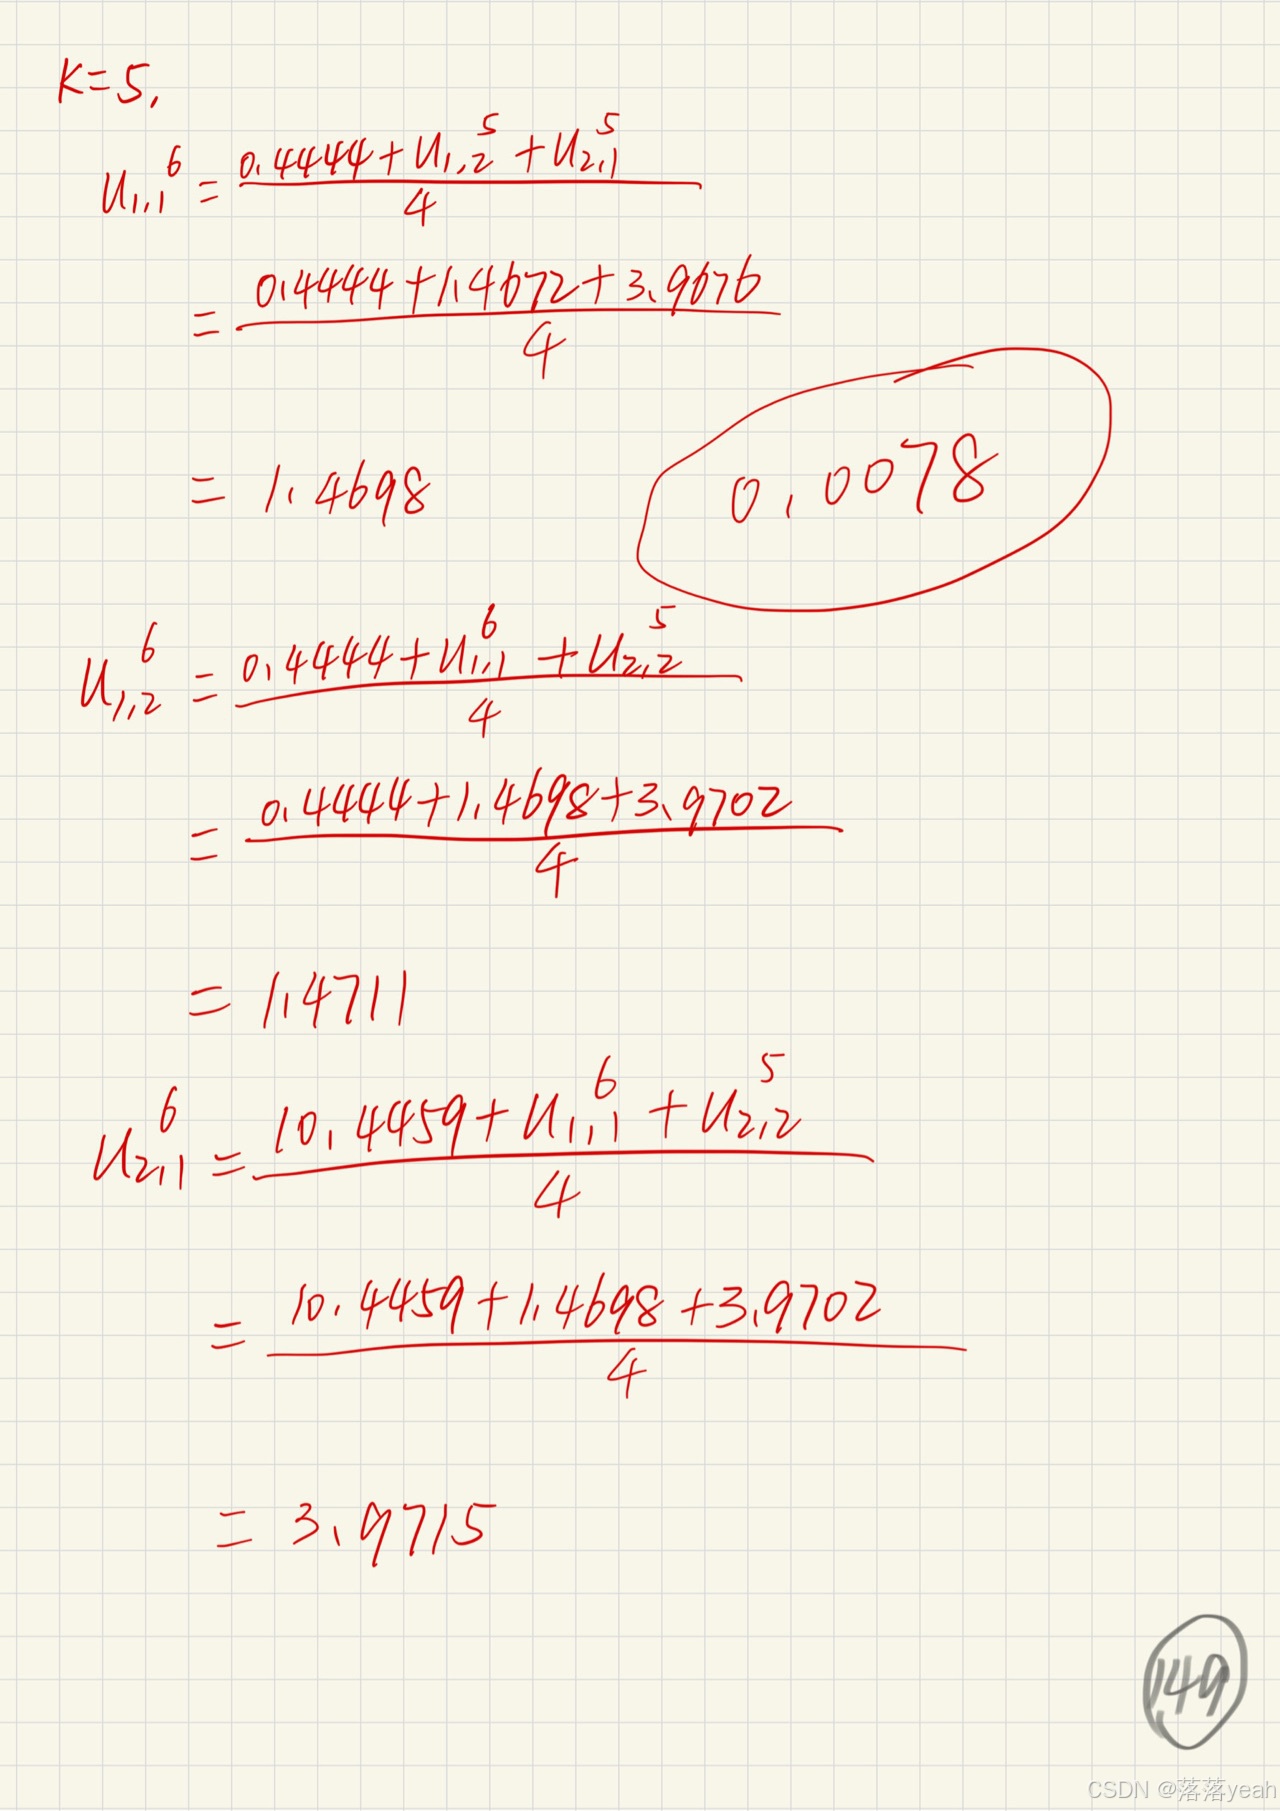 K=5,
u_{1,1}^6 = \frac{0.4444+u_{1,2}^5+u_{2,1}^5}{4}
= \frac{0.4444+1.4672+3.9676}{4}
= 1.4698
0.0078
u_{1,2}^6 = \frac{0.4444+u_{1,1}^6+u_{2,2}^5}{4}
= \frac{0.4444+1.4698+3.9702}{4}
= 1.4711
u_{2,1}^6 = \frac{10.4459+u_{1,1}^6+u_{2,2}^5}{4}
= \frac{10.4459+1.4698+3.9702}{4}
= 3.9715
149
CSDN @落落yeah